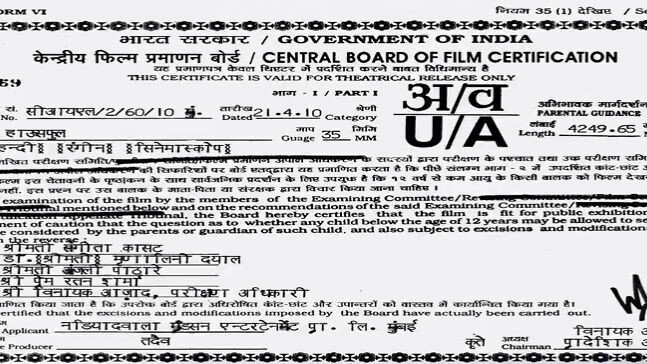 ORM VI नियम 35 (1) देखिए / Se
भारत सरकार / GOVERNMENT OF INDIA
केन्द्रीय फिल्म प्रमाणन बोर्ड / CENTRAL BOARD OF FILM CERTIFICATION
यह प्रमाणपत्र केवल थियेटर में प्रदर्शित करने बाबत विधिमान्य है
THIS CERTIFICATE IS VALID FOR THEATRICAL RELEASE ONLY
59
भाग - I / PART I
अ/व
U/A
सं. सीआयएल/2/60/10 मुं. तारीख 21.4.10 श्रेणी
No. Dated Category
अभिभावक मार्गदर्शन
PARENTAL GUIDANCE
हाउसफुल माप 35 मिमि लंबाई 4249.65
Guage MM Length
हिन्दी रंगीन सिनेमास्कोप
के सदस्यों द्वारा परीक्षण के पश्चात तथा उक्त परीक्षण समि
की सिफारिशों पर बोर्ड एतद्द्वारा यह प्रमाणित करता है कि पीछे संलग्न भाग - २ में उपदर्शित कांट-छांट
फिल्म इस चेतावनी के पृष्ठांकन के साथ सार्वजनिक प्रदर्शन के लिए उपयुक्त है कि १२ वर्ष से कम आयु के किसी बालक को फिल्म देख
नहीं, इस प्रश्न पर उस बालक के माता-पिता या संरक्षक द्वारा विचार किया जाना चाहिए ।
examination of the film by the members of the Examining Committee/
mentioned below and on the recommendations of the said Examining Committee/
the Board hereby certifies that the film is fit for public exhibition
ment of caution that the question as to whether any child below the age of 12 years may be allowed to se
be considered by the parents or guardian of such child, and also subject to excisions and modification
n the reverse :
श्रीमती संगीता कासट
डा. श्रीमती मृणालिनी दयाल
श्रीमती अंजली पाठारे
श्री प्रेम रतन शर्मा
श्री विनायक आज़ाद, परीक्षण अधिकारी
माणित किया जाता है कि उपरोक्त बोर्ड द्वारा अधिरोपित कांट-छांट और उपान्तरों को वास्तव में कार्यान्वित किया गया है।
certified that the excisions and modifications imposed by the Board have actually been carried out.
Applicant नडियादवाला ग्रॅंडसन एन्टरटेनमेंट प्रा. लि. मुंबई विनायक अ
Producer तदैव कृते अध्यक्ष प्रादेशिक अ
Chairman